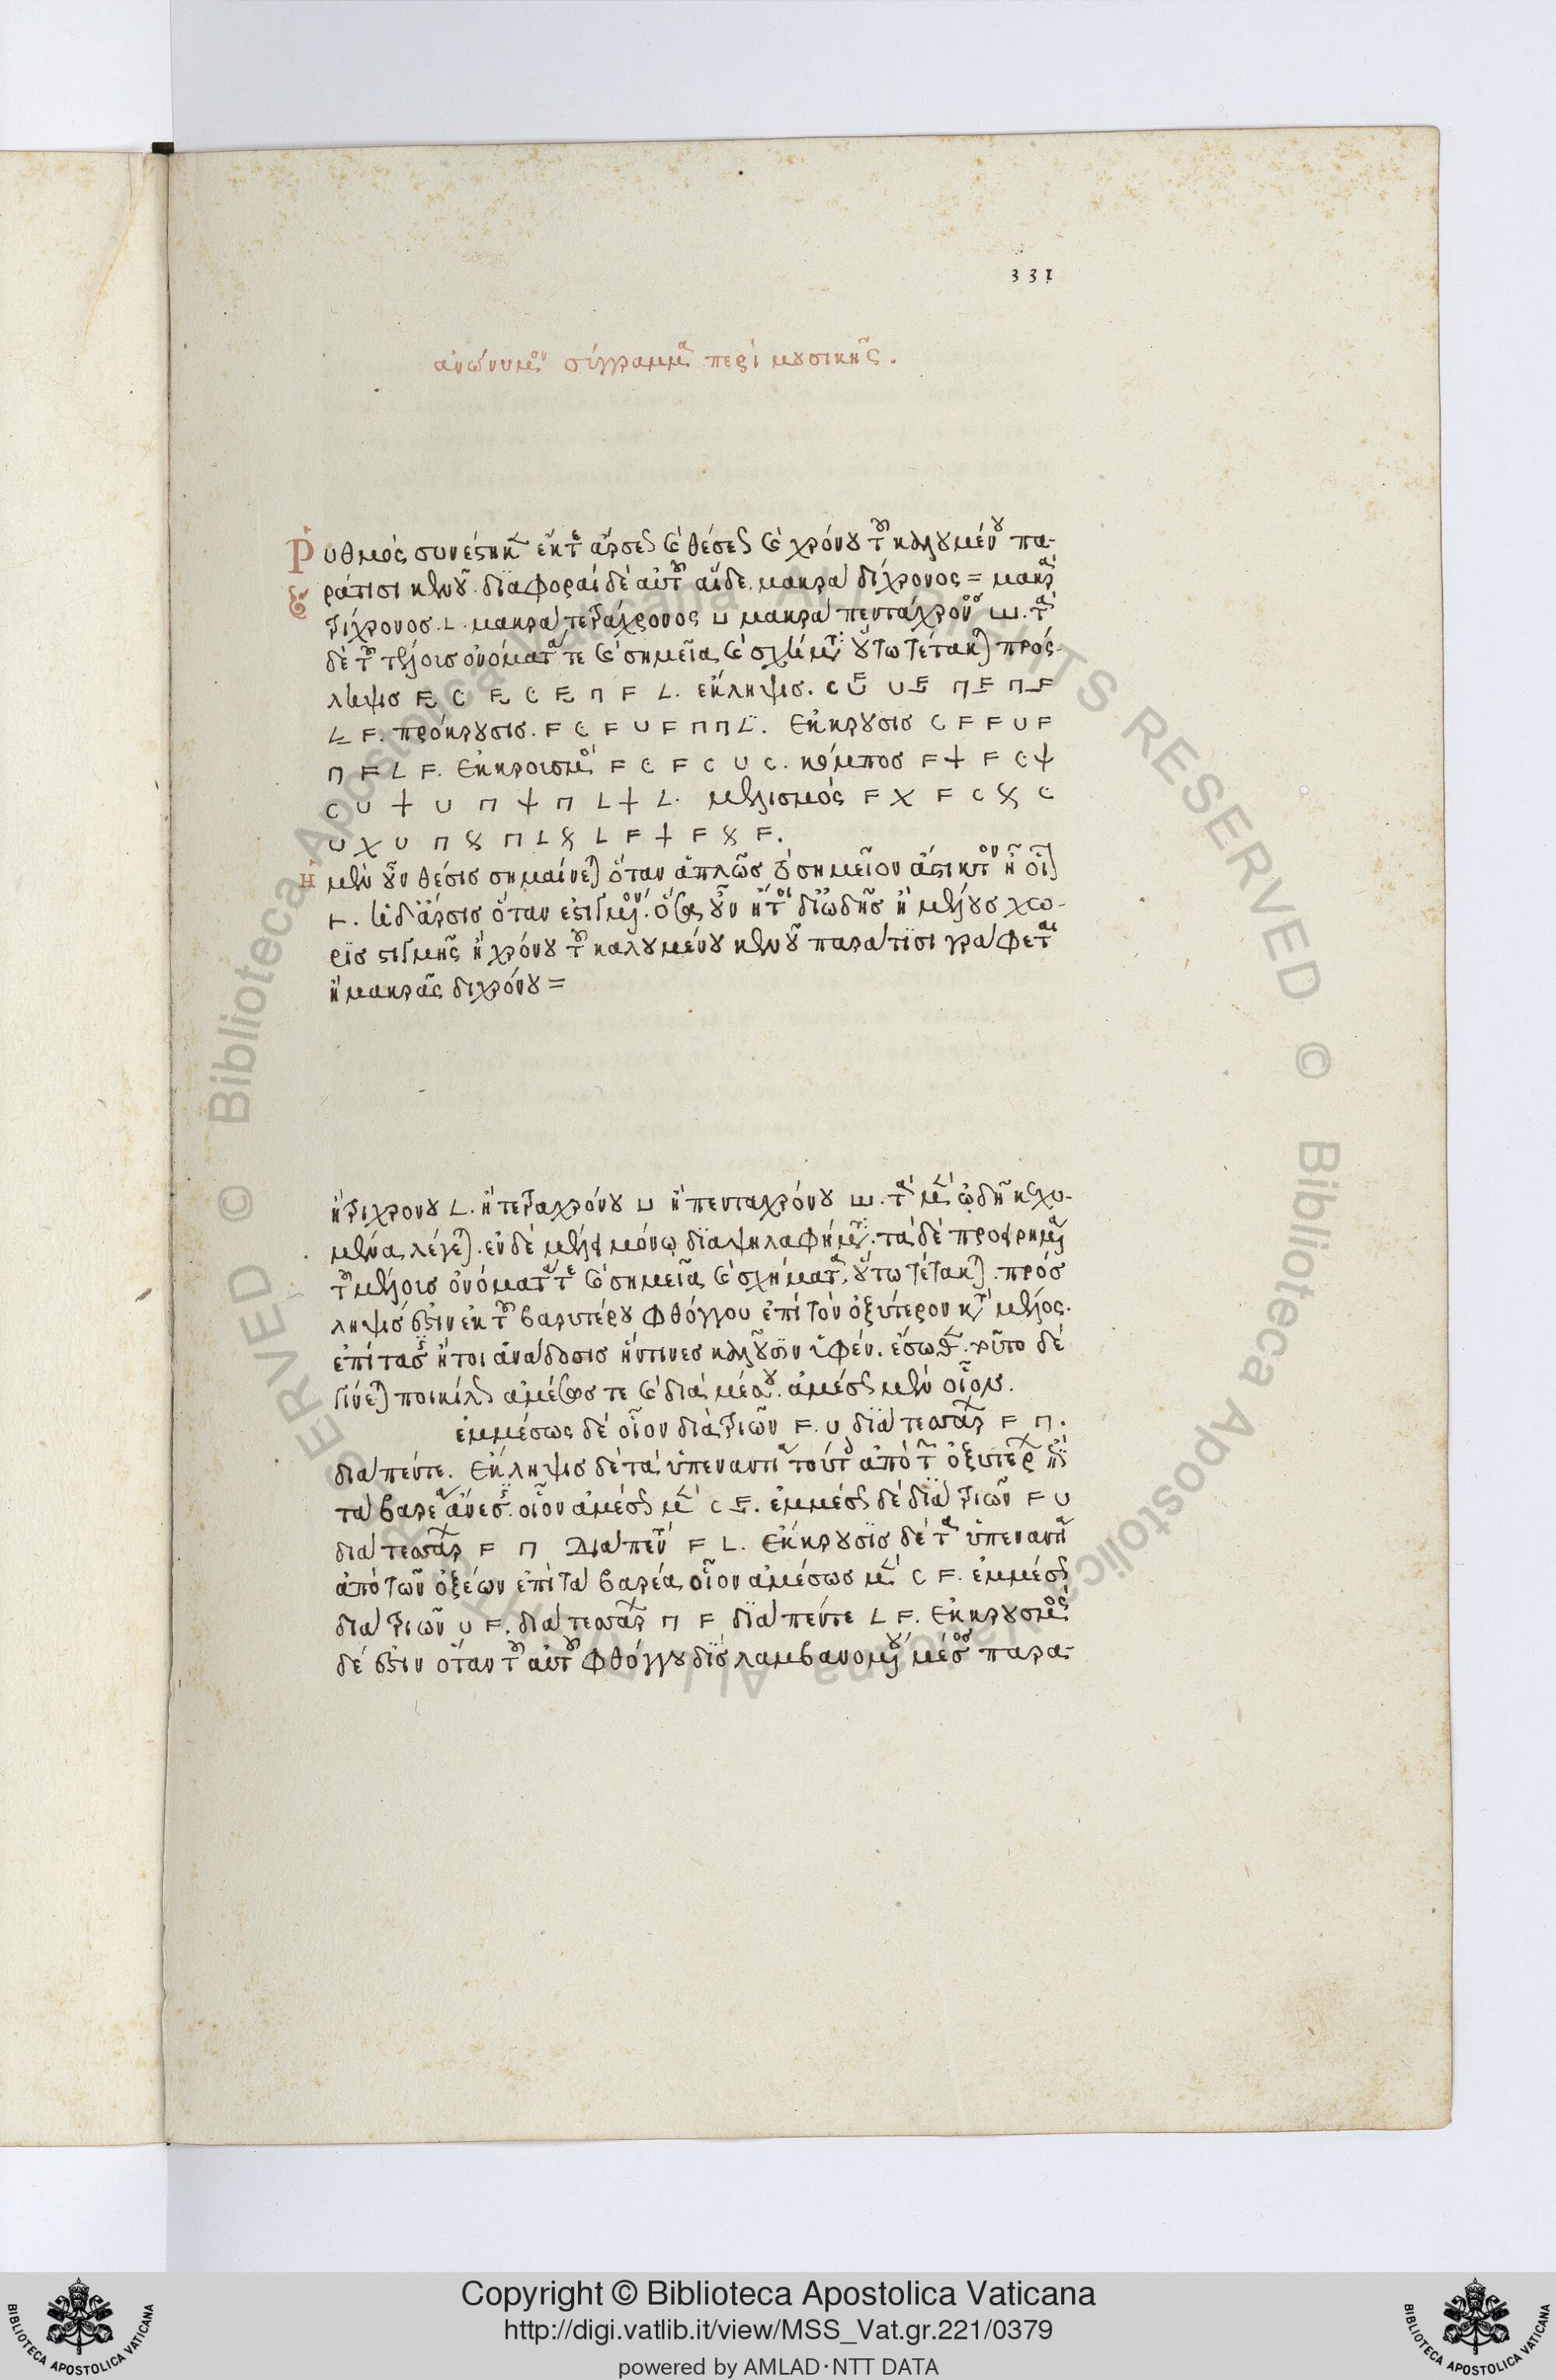 331
ἀνώνυμου σύγγραμμα περὶ μουσικῆς.
Ῥυθμὸς συνέστηκεν ἔκ τε ἄρσεως καὶ θέσεως καὶ χρόνου τοῦ καλουμένου πα-
ρά τισι κενοῦ. διαφοραὶ δὲ αὐτοῦ αἵδε. μακρὰ δίχρονος = μακρὰ
τρίχρονος. L. μακρὰ τετράχρονος ⊔ μακρὰ πεντάχρονος ш. τὰ
δὲ τοῦ μέλους ὀνόματά τε καὶ σημεῖα καὶ σχήματα οὕτω τέτακται πρόσ-
ληψις
ἔκληψις.
πρόκρουσις. F C F U F Π Π L. ἔκκρουσις C F F U F
Π F L F. ἐκκρουσμὸς F C F C U C. κόμπος F + F C
C U + U Π Π L + L. μελισμὸς F X F C C
U X U Π Π L L F + F F.
ἡ μὲν οὖν θέσις σημαίνεται ὅταν ἁπλῶς τὸ σημεῖον ἄστικτον ᾖ οἷον
⊢. ἡ δ' ἄρσις ὅταν ἐστιγμένον. ὅσα οὖν ἤτοι δι' ᾠδῆς ἢ μέλους χω-
ρὶς στιγμῆς ἢ χρόνου τοῦ καλουμένου κενοῦ παρά τισι γράφεται
ἢ μακρᾶς διχρόνου =
ἢ τριχρόνου L. ἢ τετραχρόνου ⊔ ἢ πενταχρόνου ш. τὰ μὲν ᾠδῇ κεχυ-
μένα λέγεται. ἐν δὲ μέλει μόνῳ διαψηλαφήματα. τὰ δὲ προειρημένα
τοῦ μέλους ὀνόματά τε καὶ σημεῖα καὶ σχήματα, οὕτω τέτακται. πρόσ
ληψίς ἐστιν ἐκ τοῦ βαρυτέρου φθόγγου ἐπὶ τὸν ὀξύτερον κατὰ μέλος.
ἐπίτασις ἤτοι ἀνάδοσις ἥντινες καλοῦσιν ὑφὲν. ἔσωθεν. τοῦτο δὲ
γίνεται ποικίλως ἀμέσως τε καὶ διὰ μέσου. ἀμέσως μὲν οἷον.
ἐμμέσως δὲ οἷον διὰ τριῶν F. U διὰ τεσσάρων F Π.
διὰ πέντε. ἔκληψις δὲ τὰ ὑπεναντία τούτου ἀπὸ τῶν ὀξυτέρων ἐπὶ
τὰ βαρέα ἄνεσις. οἷον ἀμέσως μὲν C F. ἐμμέσως δὲ διὰ τριῶν F U
διὰ τεσσάρων F Π διὰ πέντε F L. ἔκκρουσις δὲ τὰ ὑπεναντία
ἀπὸ τῶν ὀξέων ἐπὶ τὰ βαρέα, οἷον ἀμέσως μὲν C F. ἐμμέσως
διὰ τριῶν U F. διὰ τεσσάρων Π F διὰ πέντε L F. ἐκκρουσμὸς
δέ ἐστιν ὅταν τοῦ αὐτοῦ φθόγγου δὶς λαμβανομένου μέσος παρα-
© Biblioteca Apostolica Vicana ALL RIGHTS RESERVED
Copyright © Biblioteca Apostolica Vaticana
http://digi.vatlib.it/view/MSS_Vat.gr.221/0379
powered by AMLAD·NTT DATA
BIBLIOTECA APOSTOLICA VATICANA
BIBLIOTECA APOSTOLICA VATICANA